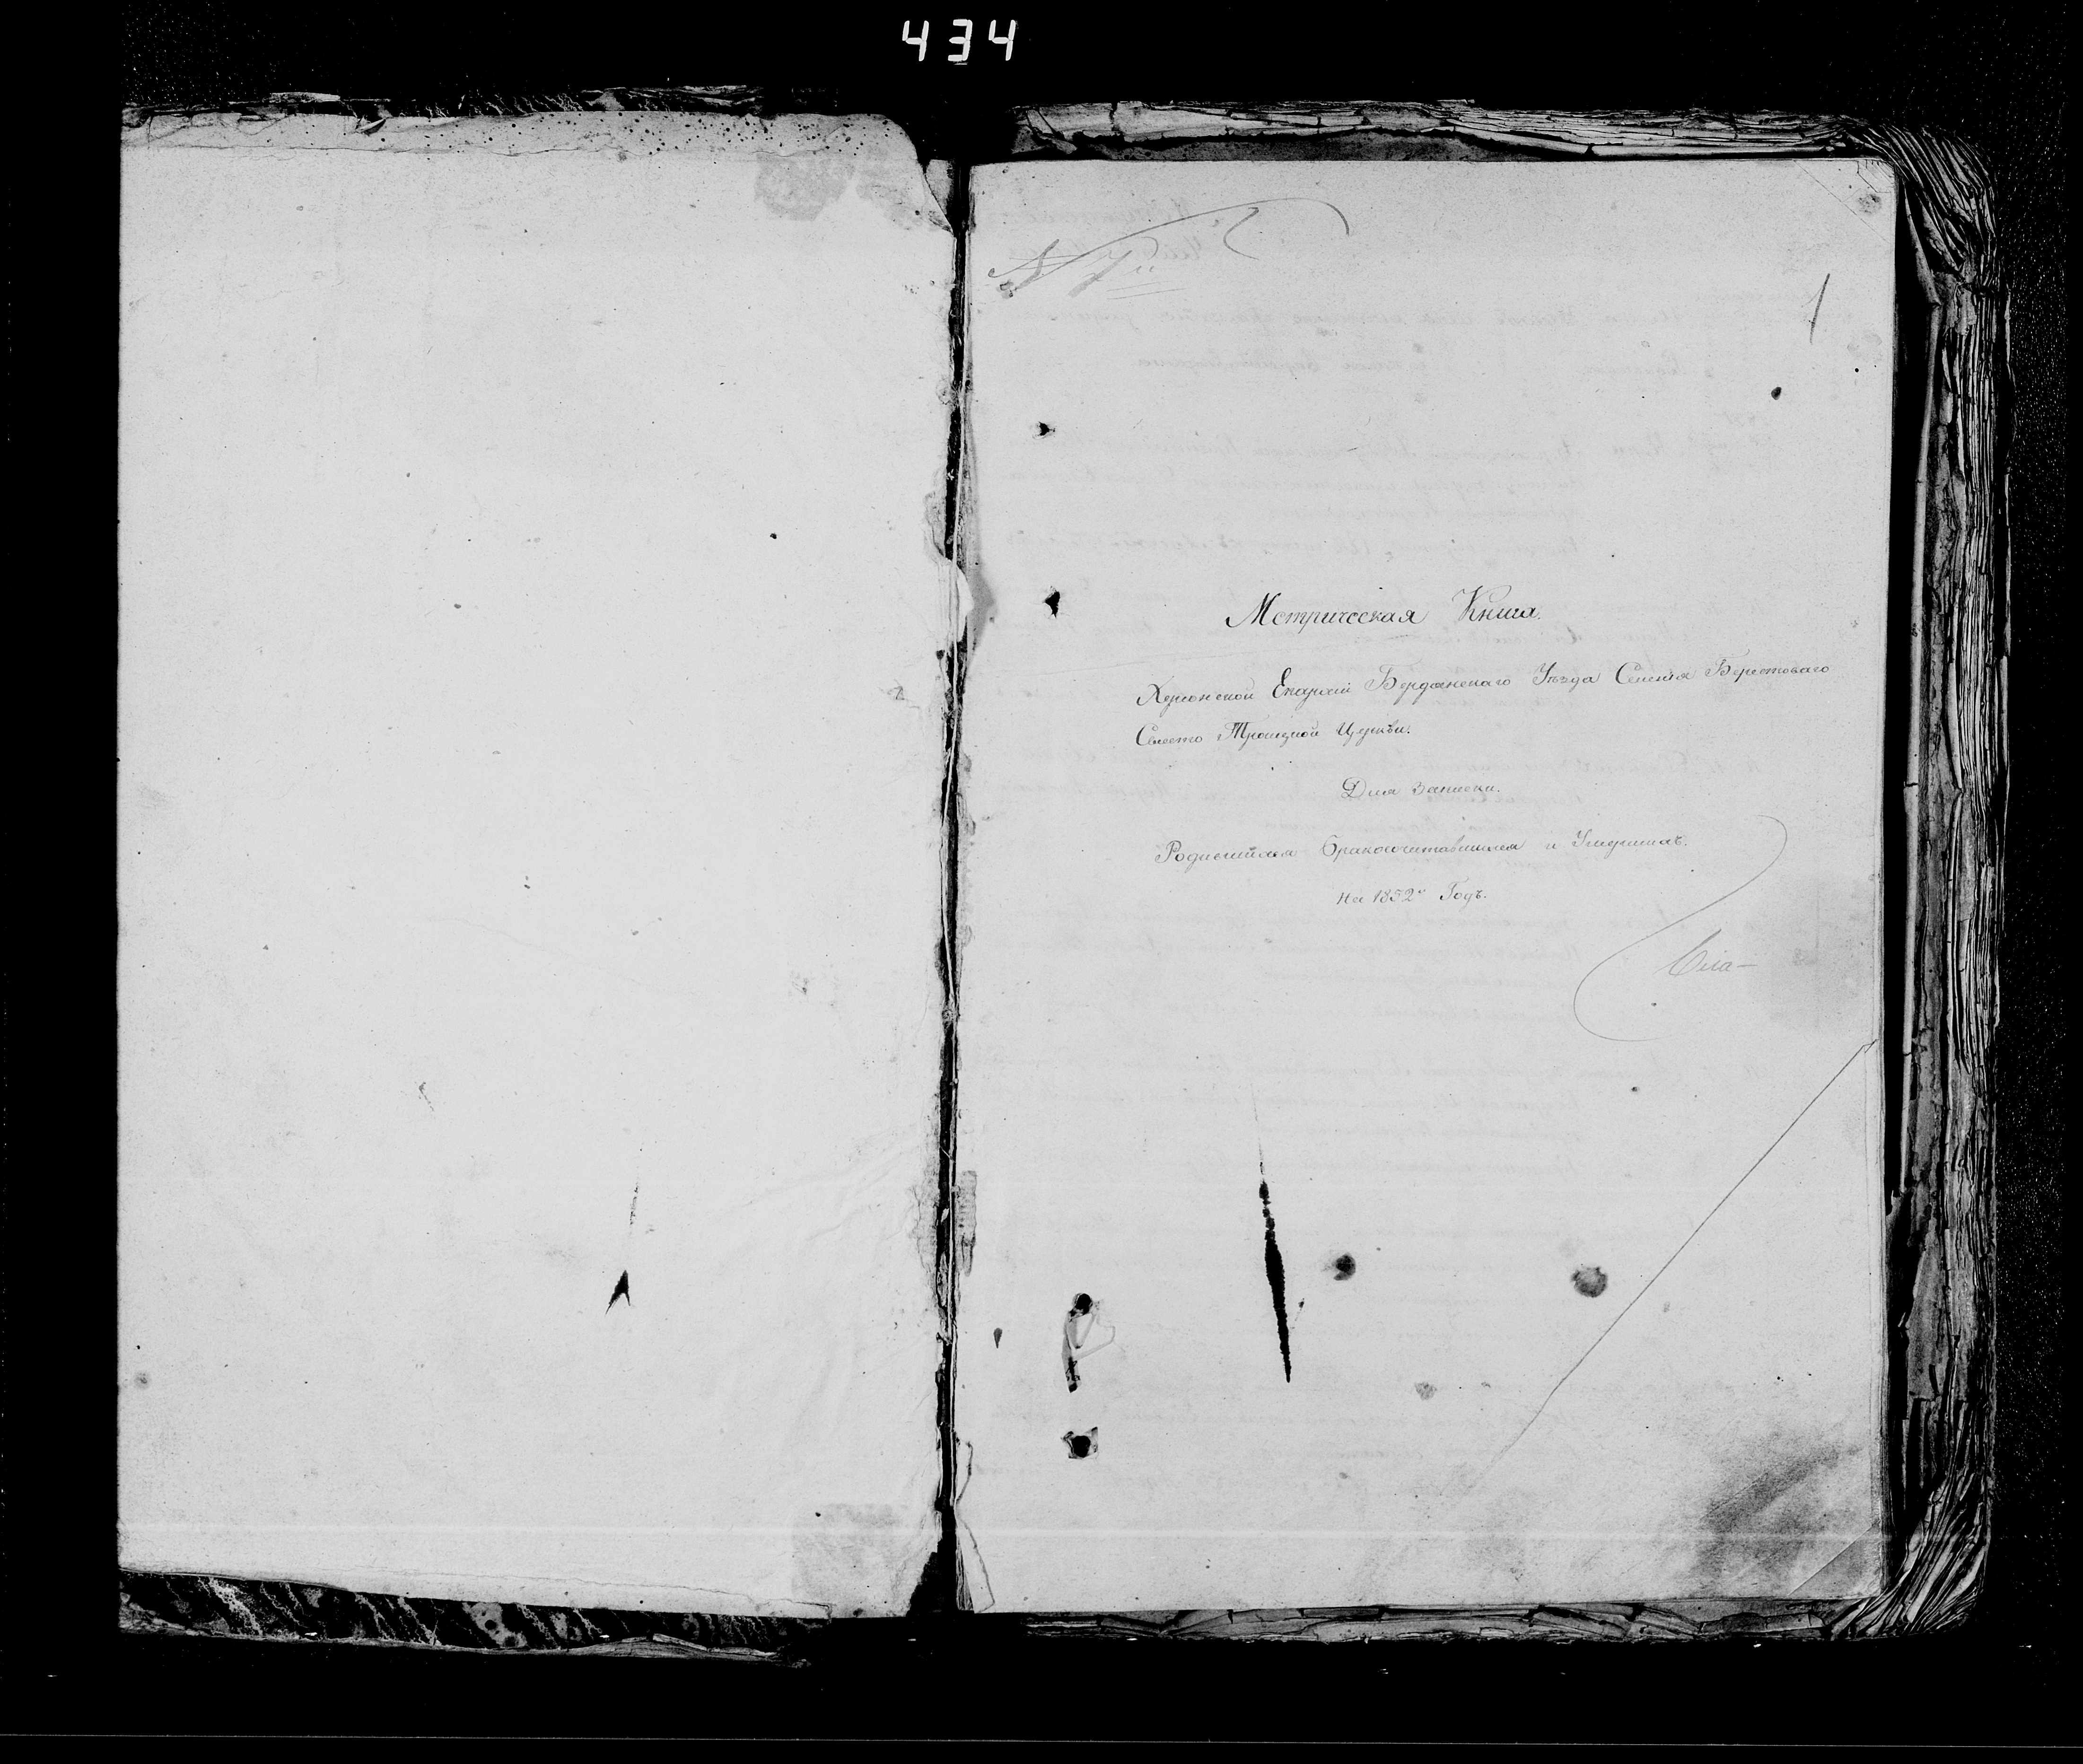 434
1
Метрическая Книга.
Херсонской Епархіи Бердянскаго Уѣзда Селенія Берестоваго
Свято Троицкой Церкви.
Для Записки.
Родившихся Бракосочитавшихся и Умершихъ.
На 1852й Годъ.